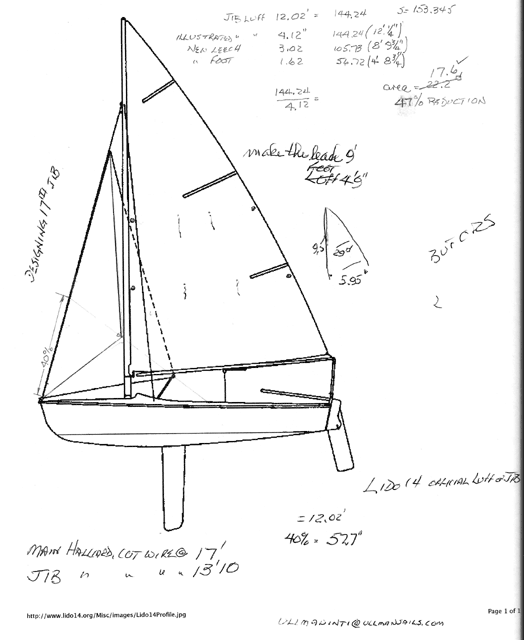 JIB LUFF 12.02' = 144.24 S=153.345
ILLUSTRATED " " 4.12" 144.24 (12' 1/4")
NEW LEECH 3.02 105.73 (8' 9 3/4")
" FOOT 1.62 56.72 (4' 8 3/4")
17.6 ✓
144.24
4.12 =
area = 22.2
47% REDUCTION
make the leach 9'
Foot
Luff 4'9"
DESIGNING 17 JIB
9.5'
5.95"
2
40%
LIDO 14 OFFICIAL LUFF of JIB
= 12.02'
40% = 57.7"
MAIN HALLIARD, CUT WIRE @ 17'
JIB " " " 13'10
http://www.lido14.org/Misc/images/Lido14Profile.jpg
Page 1 of 1
ULLMANVINTI@ULLMANSAILS.COM